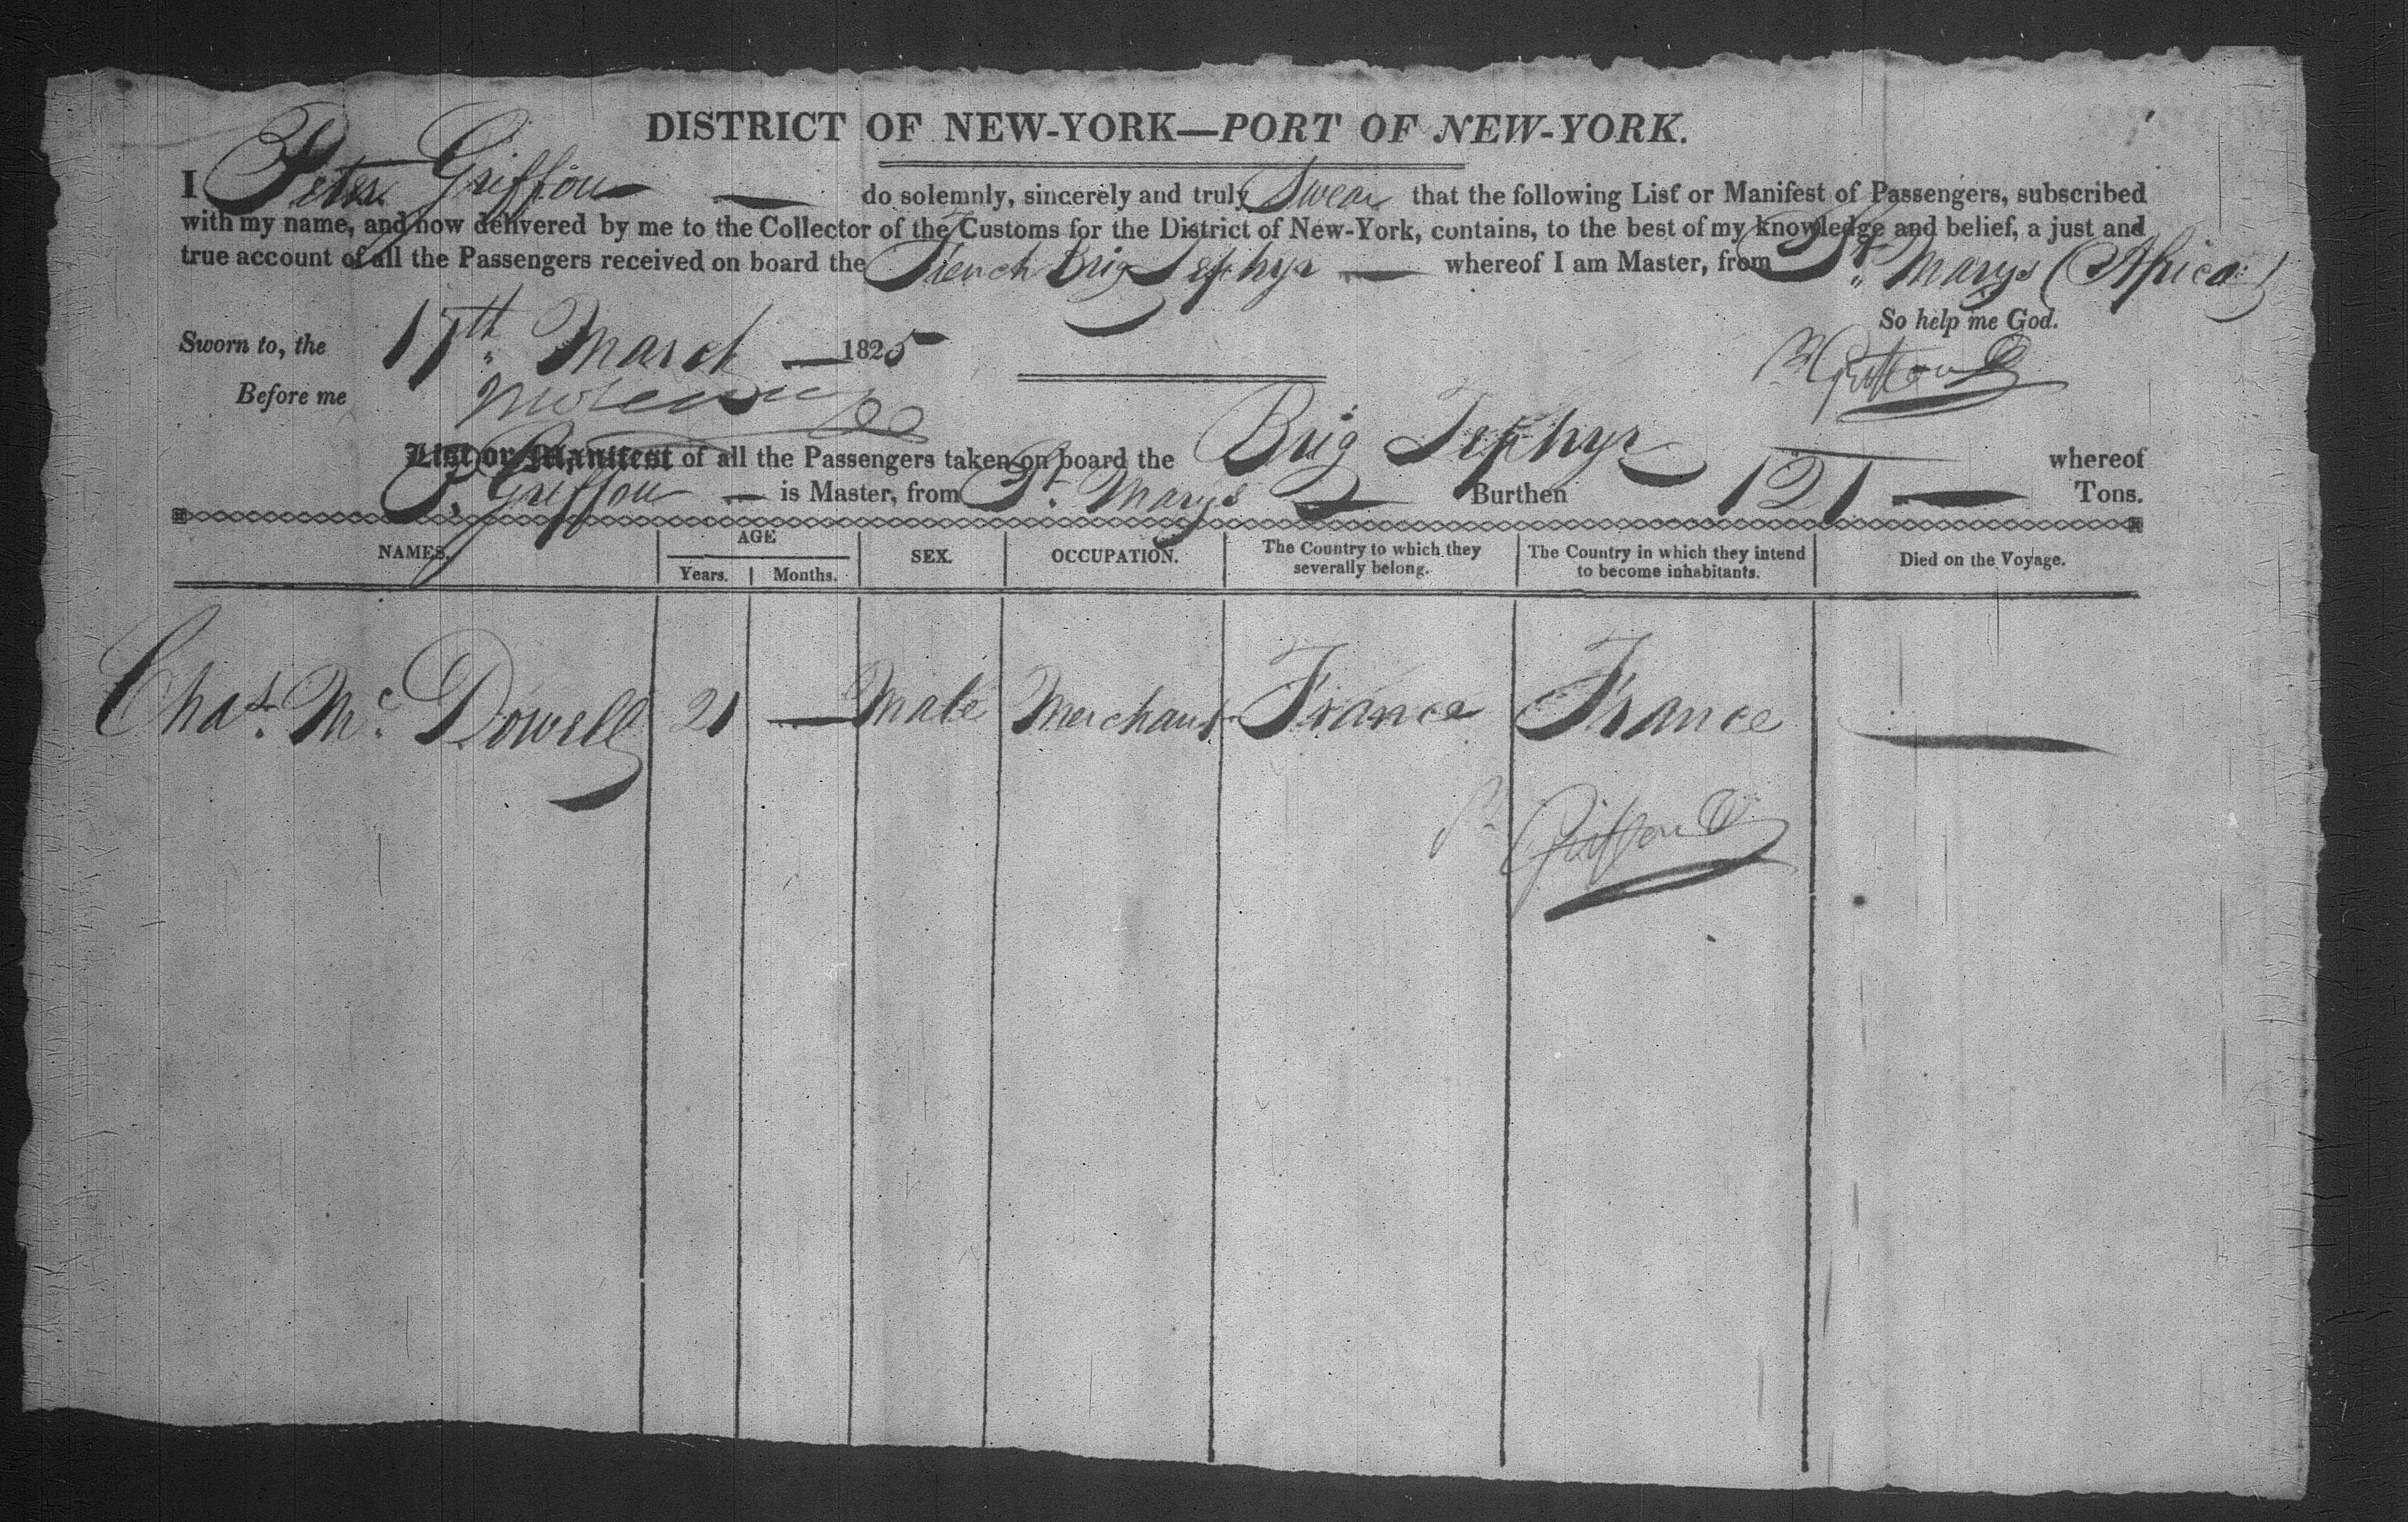 DISTRICT OF NEW-YORK—PORT OF NEW-YORK.
I Peter Griffon — do solemnly, sincerely and truly Swear that the following List or Manifest of Passengers, subscribed
with my name, and now delivered by me to the Collector of the Customs for the District of New-York, contains, to the best of my knowledge and belief, a just and
true account of all the Passengers received on board the French Brig Zephyr — whereof I am Master, from St. Marys (Africa)
So help me God.
Sworn to, the 17th March — 1825
P Griffon
Before me
List or Manifest of all the Passengers taken on board the Brig Zephyr — whereof
P. Griffon — is Master, from St. Marys — Burthen 121 — Tons.
NAMES. AGE SEX. OCCUPATION. The Country to which they severally belong. The Country in which they intend to become inhabitants. Died on the Voyage.
Years. Months.
Chas. Mc. Dowell 21 — Male Merchant France France —
P Griffon